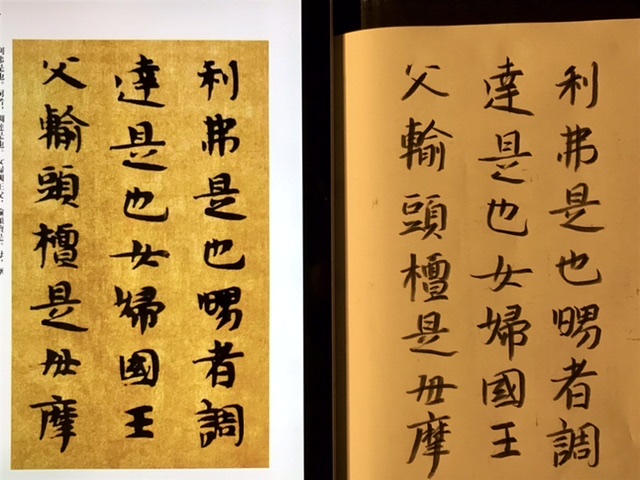 利弗是也甥者調
達是也女婦國王
父輸頭檀是母摩
利弗是也甥者調
達是也女婦國王
父輸頭檀是母摩